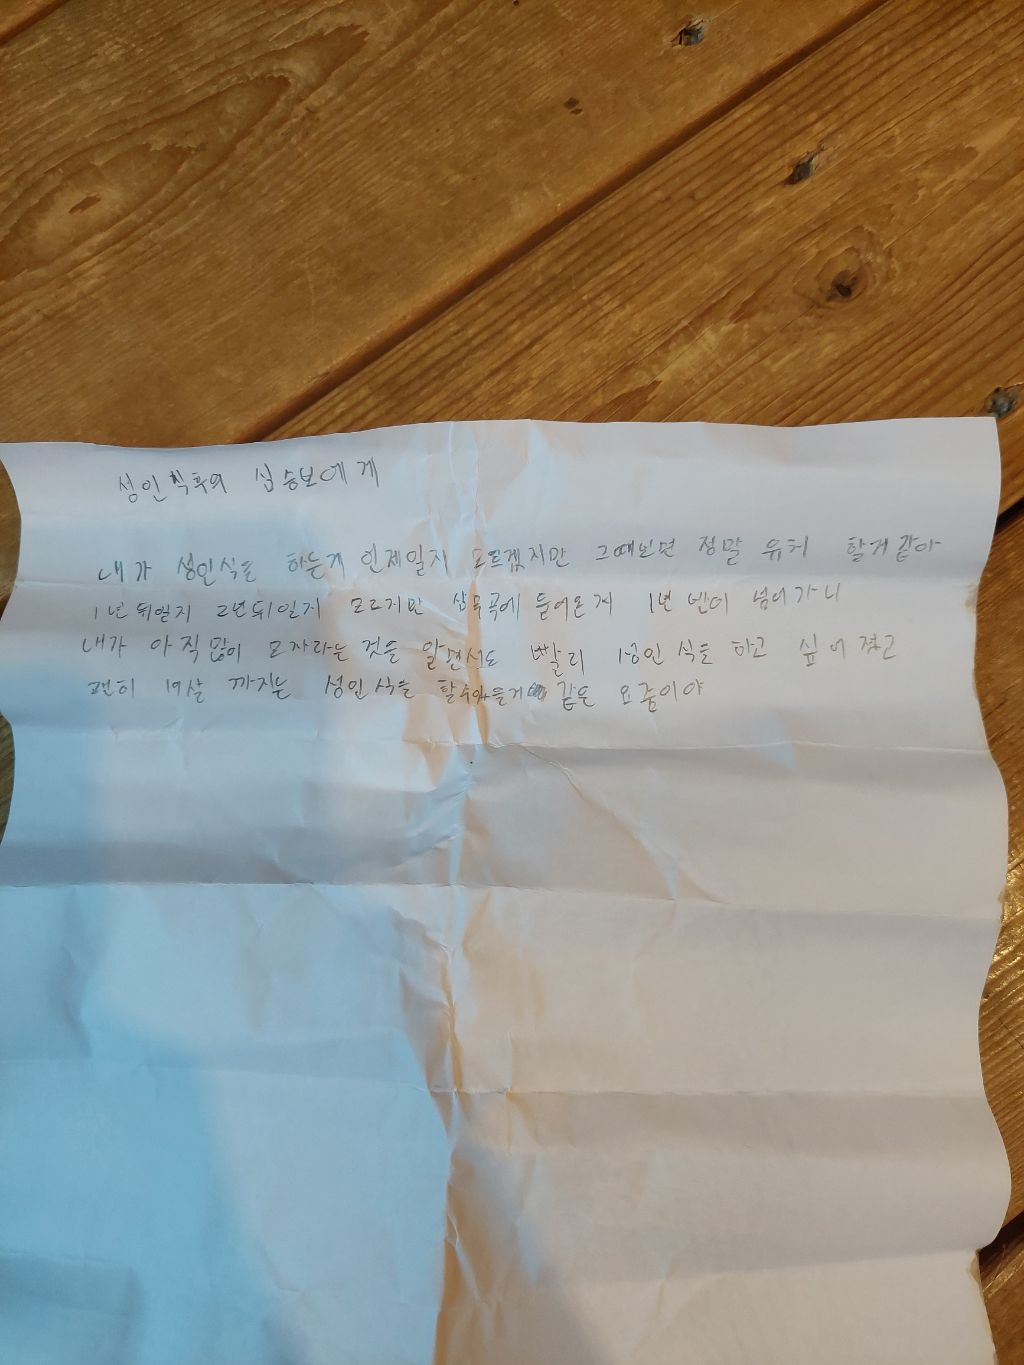 성인식후의 심승보에게
내가 성인식을 하는게 언제일지 모르겠지만 그때보면 정말 유치 할거같아
1년 뒤일지 2년뒤일지 모르지만 삼무곡에 들어온지 1년 반이 넘어가니
내가 아직많이 모자라는 것을 알면서도 빨리 성인식을 하고 싶어졌고
괜히 19살 까지는 성인식을 할수있을거 같은 요즘이야